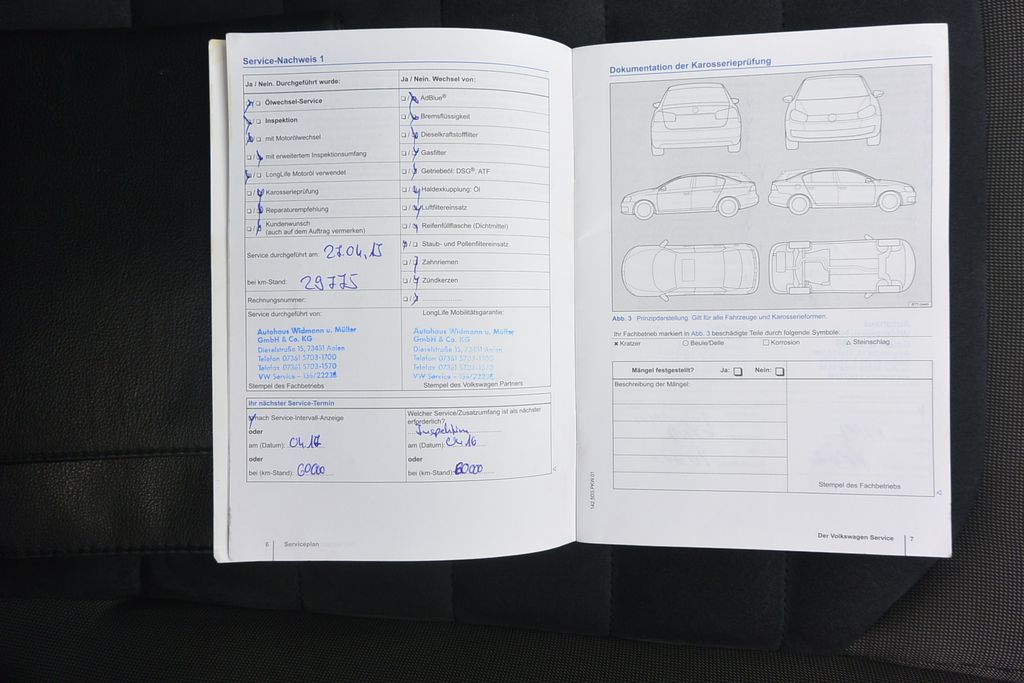 Service-Nachweis 1
Ja / Nein. Durchgeführt wurde:
❏/❏ Ölwechsel-Service
❏/❏ Inspektion
❏/❏ mit Motorölwechsel
❏/❏ mit erweitertem Inspektionsumfang
❏/❏ LongLife Motoröl verwendet
❏/❏ Karosserieprüfung
❏/❏ Reparaturempfehlung
❏/❏ Kundenwunsch
(auch auf dem Auftrag vermerken)
Service durchgeführt am: 27.04.15
bei km-Stand: 29775
Rechnungsnummer:
Ja / Nein. Wechsel von:
❏/❏ AdBlue®
❏/❏ Bremsflüssigkeit
❏/❏ Dieselkraftstofffilter
❏/❏ Gasfilter
❏/❏ Getriebeöl: DSG®, ATF
❏/❏ Haldexkupplung: Öl
❏/❏ Luftfiltereinsatz
❏/❏ Reifenfüllflasche (Dichtmittel)
❏/❏ Staub- und Pollenfiltereinsatz
❏/❏ Zahnriemen
❏/❏ Zündkerzen
❏/❏
Service durchgeführt von:
Autohaus Widmann u. Müller
GmbH & Co. KG
Dieselstraße 15, 73431 Aalen
Telefon 07361 5703-1700
Telefax 07361 5703-1570
VW Service - 136/22238
Stempel des Fachbetriebs
LongLife Mobilitätsgarantie:
Autohaus Widmann u. Müller
GmbH & Co. KG
Dieselstraße 15, 73431 Aalen
Telefon 07361 5703-1700
Telefax 07361 5703-1570
VW Service - 136/22238
Stempel des Volkswagen Partners
Ihr nächster Service-Termin
nach Service-Intervall-Anzeige
oder
am (Datum): 04.17
oder
bei (km-Stand): 60000
Welcher Service/Zusatzumfang ist als nächster
erforderlich?
Inspektion
am (Datum): 04.16
oder
bei (km-Stand): 60000
6 Serviceplan
Dokumentation der Karosserieprüfung
Abb. 3 Prinzipdarstellung. Gilt für alle Fahrzeuge und Karosserieformen.
Ihr Fachbetrieb markiert in Abb. 3 beschädigte Teile durch folgende Symbole:
✖ Kratzer ○ Beule/Delle ☐ Korrosion △ Steinschlag
Mängel festgestellt? Ja: ❏ Nein: ❏
Beschreibung der Mängel:
Stempel des Fachbetriebs
142.5D3.PKW.01
Der Volkswagen Service 7